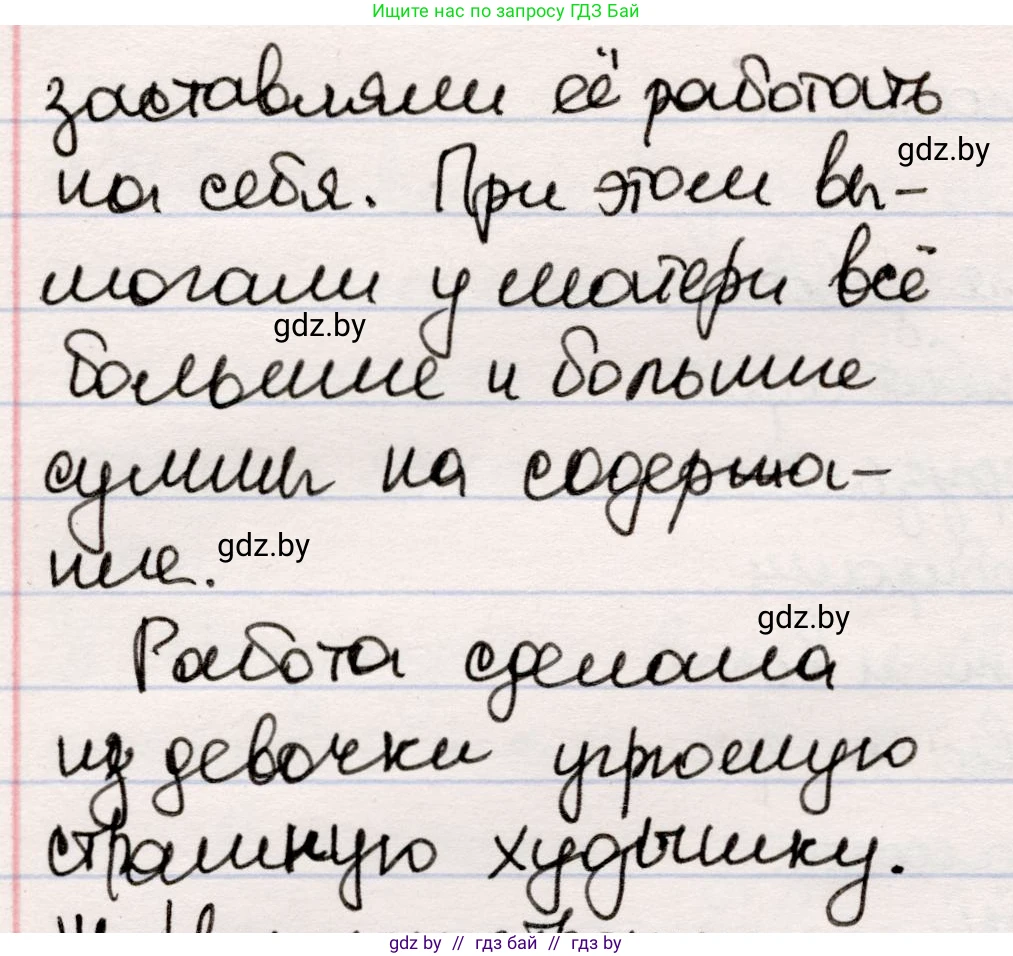 Ищите нас по запросу ГДЗ Бай
заставляли её работать
gdz.by
на себя. При этом вы-
могали у матери всё
gdz.by
больше и больше
суммы на содержа-
gdz.by
ние.
gdz.by
Работа сделала
из девочки угрюмую
страшную худышку.
gdz by // гдз бай // gdz by